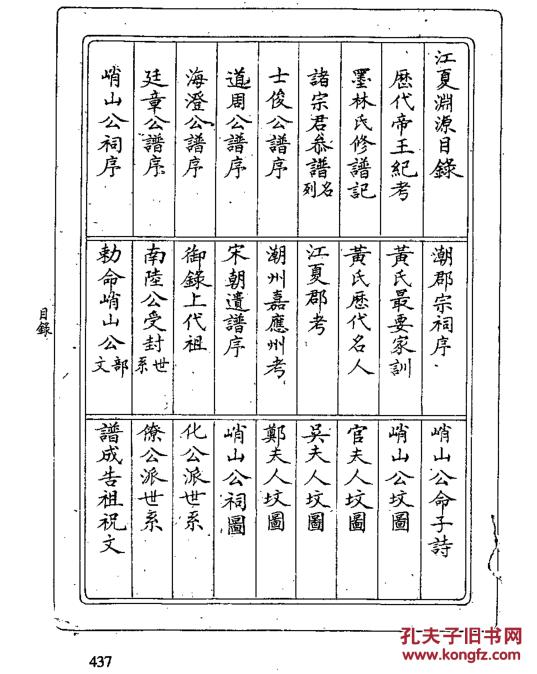 江夏淵源目錄
歷代帝王紀考
墨林氏修譜記
諸宗君叅譜名列
士俊公譜序
道周公譜序
海澄公譜序
廷章公譜序
峭山公祠序
潮郡宗祠序
黃氏最要家訓
黃氏歷代名人
江夏郡考
潮州嘉應州考
宋朝遺譜序
御錄上代祖
南陸公受封世系
勅命峭山公部文
峭山公命子詩
峭山公坟圖
官夫人坟圖
吳夫人坟圖
鄭夫人坟圖
峭山公祠圖
化公派世系
僚公派世系
譜成告祖祝文
目錄
437
孔夫子旧书网
www.kongfz.com